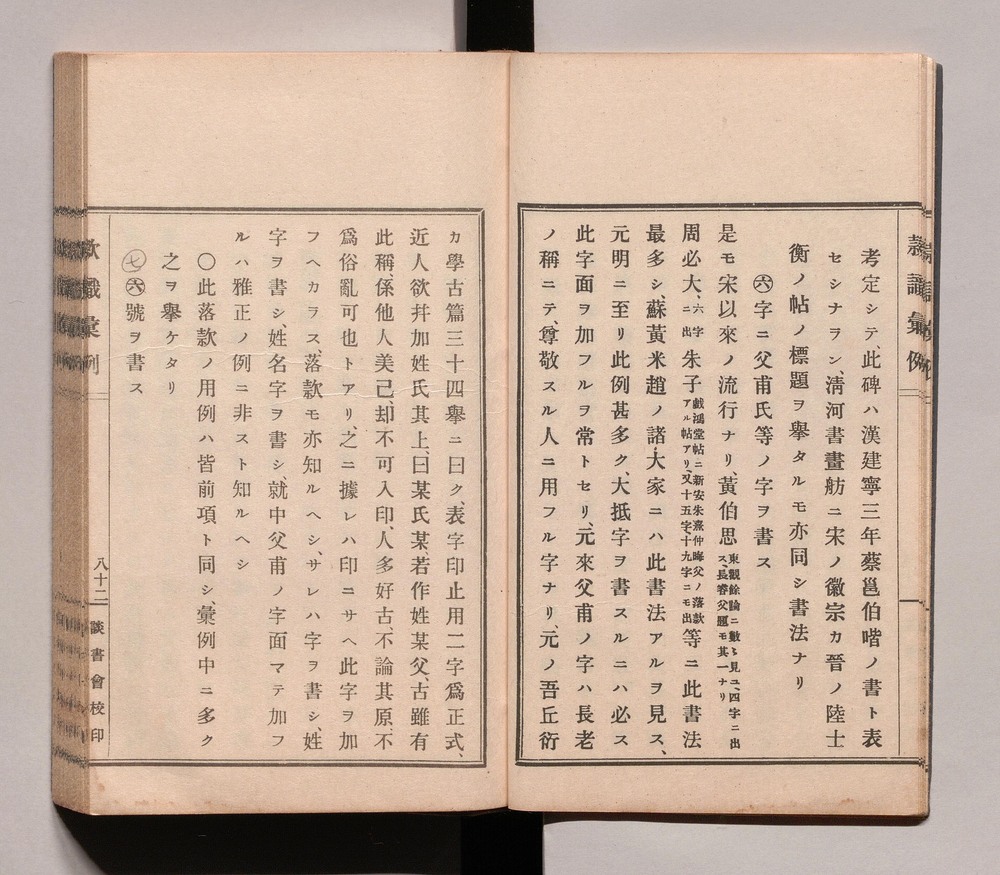 考定シテ、此碑ハ漢建寧三年蔡邕伯喈ノ書ト表
セシナヲン、淸河書畫舫ニ宋ノ徽宗カ晉ノ陸士
衡ノ帖ノ標題ヲ擧タルモ亦同シ書法ナリ
㊅字ニ父甫氏等ノ字ヲ書ス
是モ宋以來ノ流行ナリ、黃伯思東觀餘論ニ數〻見ユ、四字ニ出ス、長睿父題モ其一ナリ
周必大、六字ニ出朱子戲鴻堂帖ニ新安朱熹仲晦父ノ落款アル帖アリ、又十五字十九字ニモ出等ニ此書法
最多シ、蘇黃米趙ノ諸大家ニハ此書法アルヲ見ス、
元明ニ至リ此例甚多ク、大抵字ヲ書スルニハ必ス
此字面ヲ加フルヲ常トセリ、元來父甫ノ字ハ長老
ノ稱ニテ、尊敬スル人ニ用フル字ナリ、元ノ吾丘衍
カ學古篇三十四擧ニ曰ク、表字印止用二字爲正式、
近人欲幷加姓氏其上、曰某氏某、若作姓某父、古雖有
此稱、係他人美己、却不可入印、人多好古、不論其原、不
爲俗亂可也トアリ、之ニ據レハ印ニサヘ此字ヲ加
フヘカラス、落款モ亦知ルヘシ、サレハ字ヲ書シ、姓
字ヲ書シ、姓名字ヲ書シ、就中父甫ノ字面マテ加フ
ルハ雅正ノ例ニ非スト知ルヘシ
〇此落款ノ用例ハ皆前項ト同シ、彙例中ニ多ク
之ヲ擧ケタリ
㊆號ヲ書ス
款識彙例
八十二
談書會校印